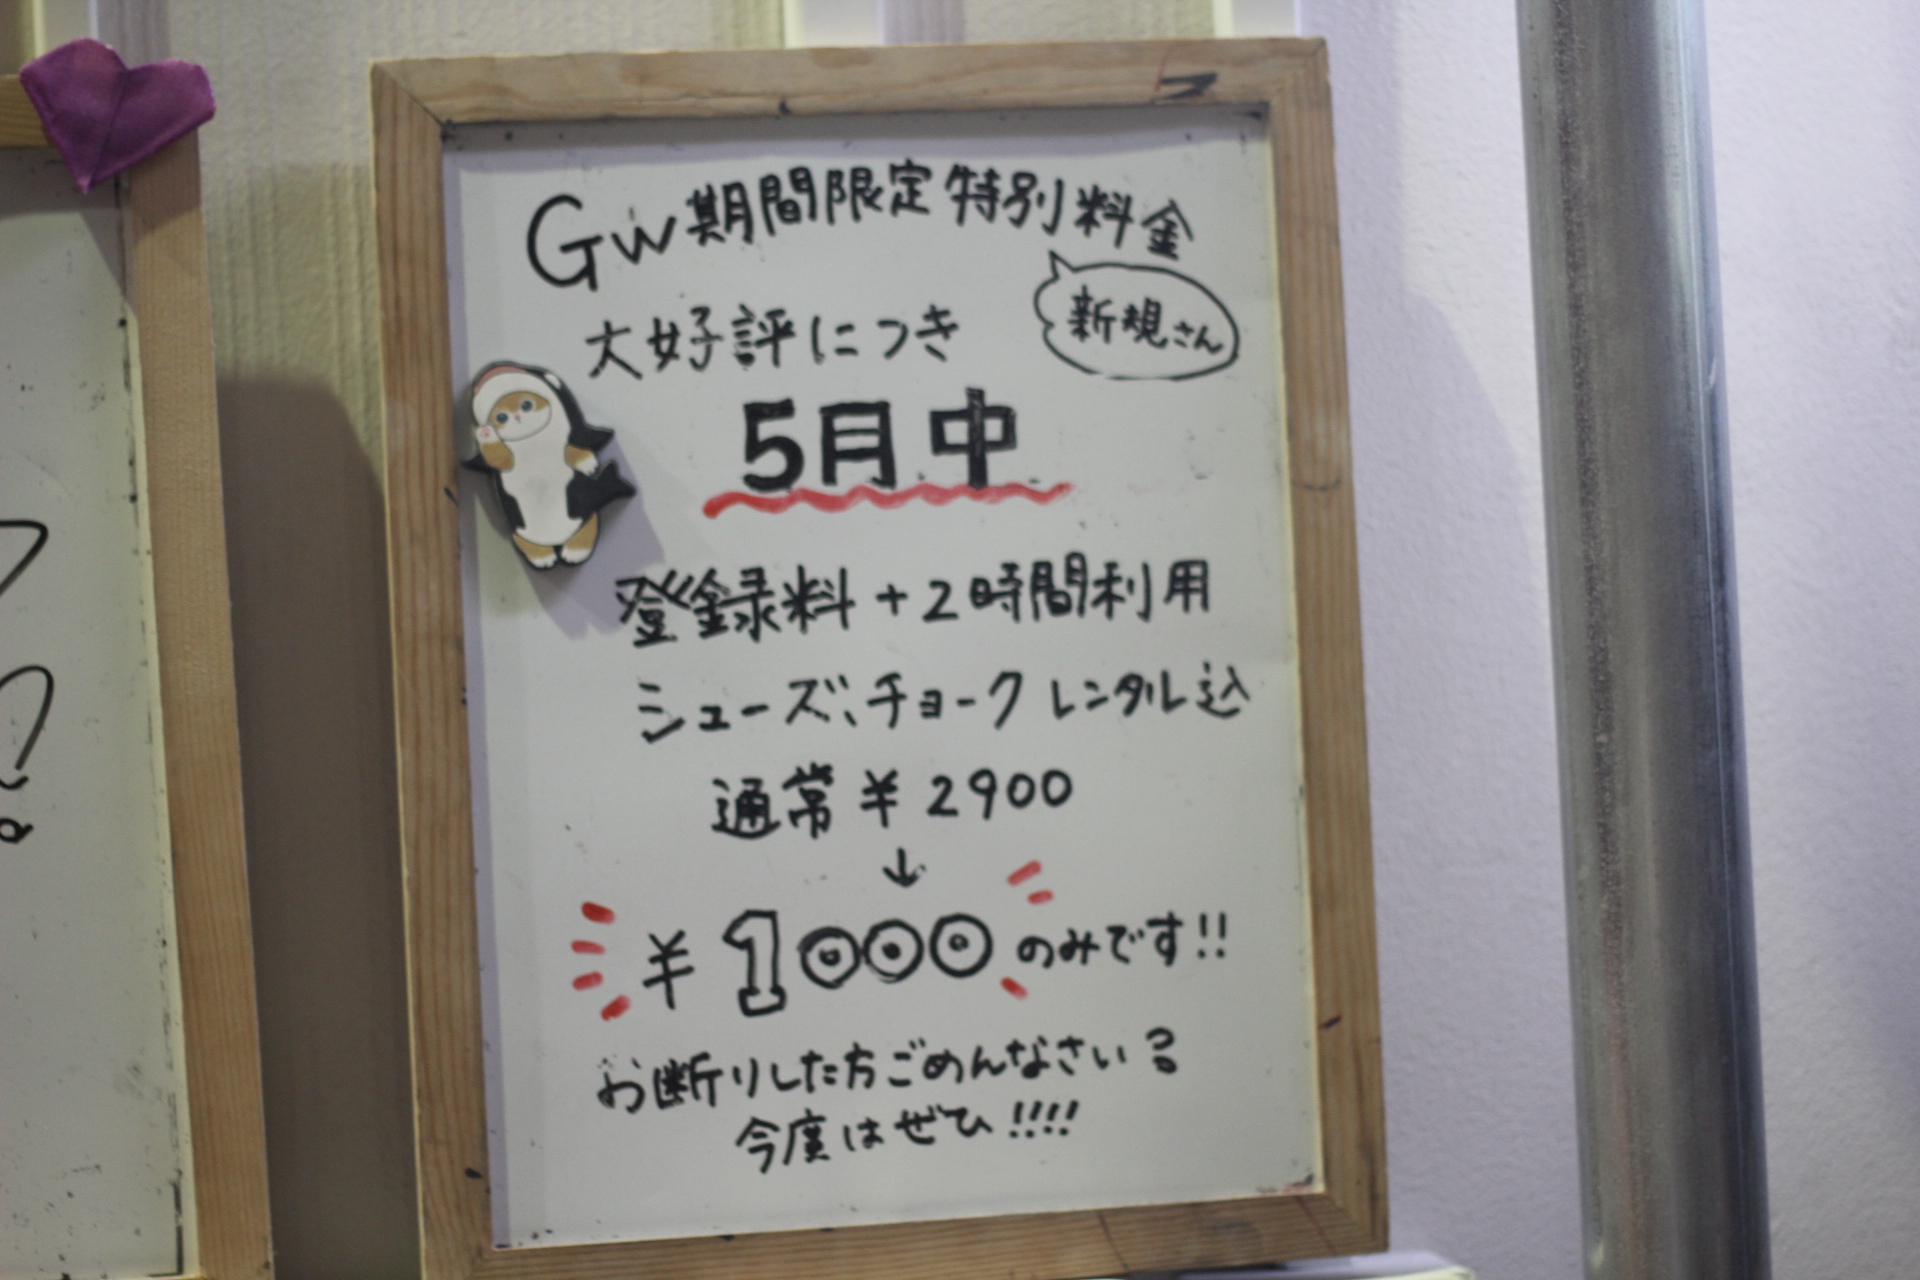 GW期間限定特別料金
新規さん
大好評につき
5月中
登録料+2時間利用
シューズ、チョークレンタル込
通常¥2900
↓
¥1000のみです!!
お断りした方ごめんなさい
今度はぜひ!!!!